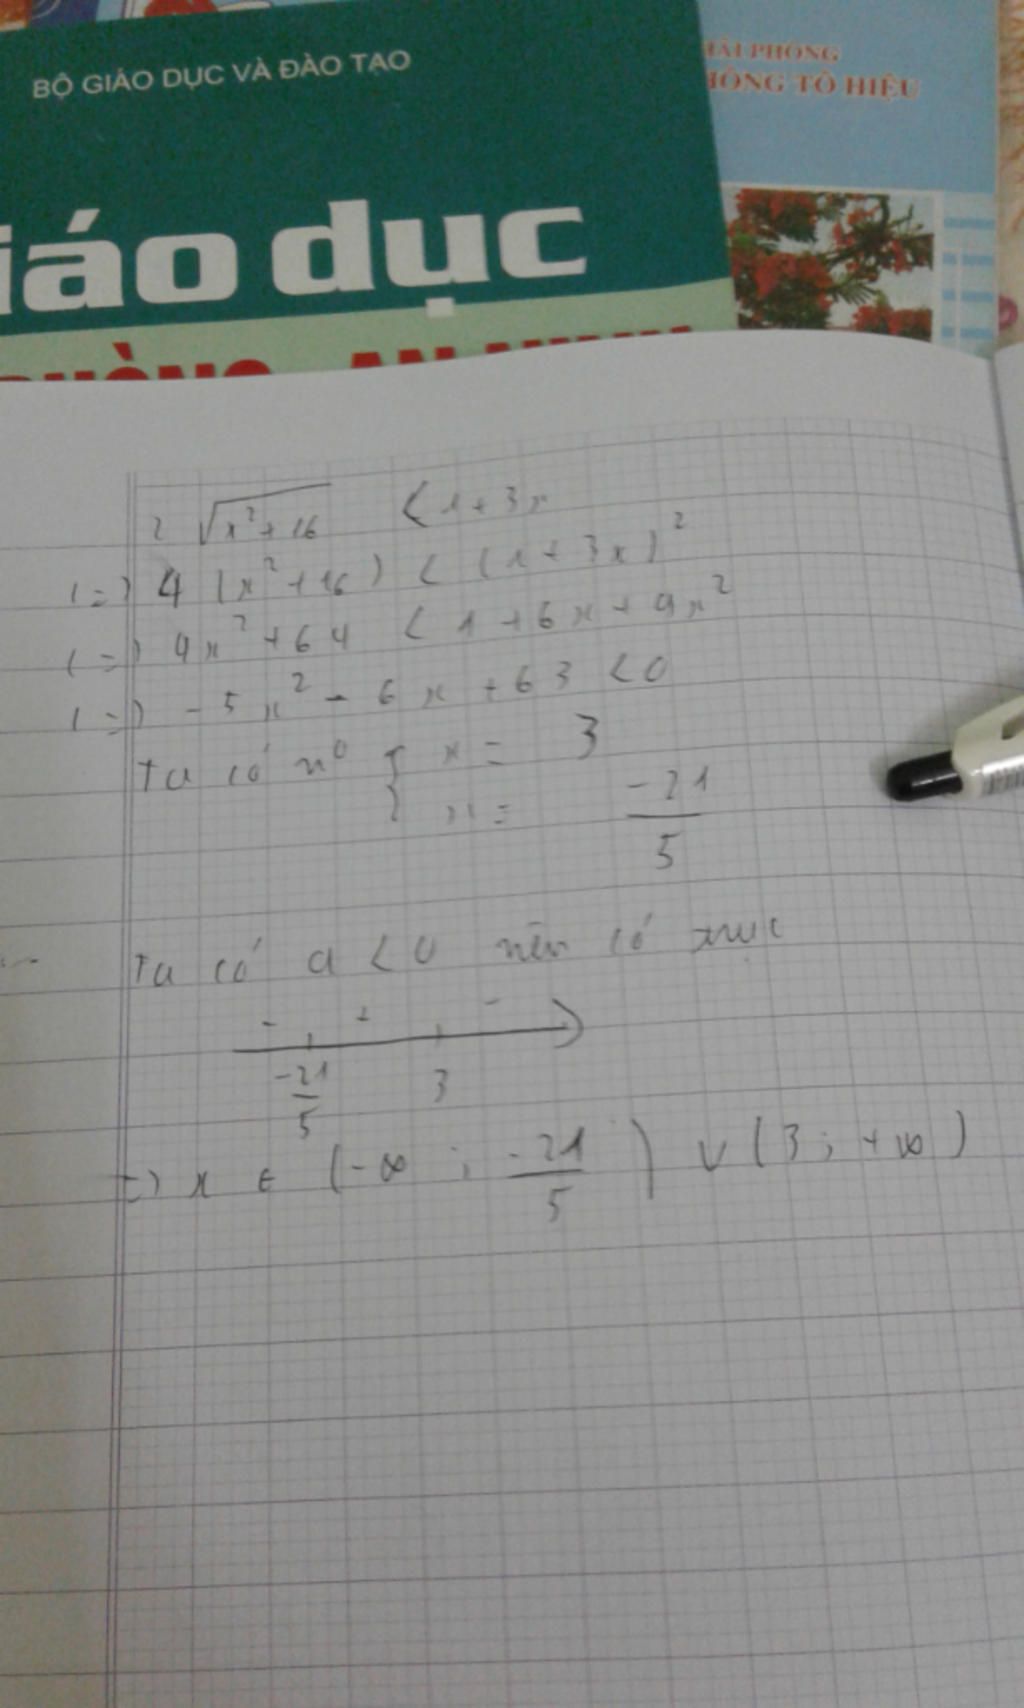 BỘ GIÁO DỤC VÀ ĐÀO TẠO
HẢI PHÒNG
HÔNG TÔ HIỆU
iáo dục
2 √x²+16 < 1+3x
(=) 4 (x²+16) < (1+3x)²
(=) 4x²+64 < 1+6x+9x²
(=) -5x²-6x+63 <0
Ta có n⁰ { x = 3
{ x = -21/5
Ta có a < 0 nên có trục
- + -
-21/5 3
=) x ∈ (-∞ ; -21/5) ∪ (3; +∞)